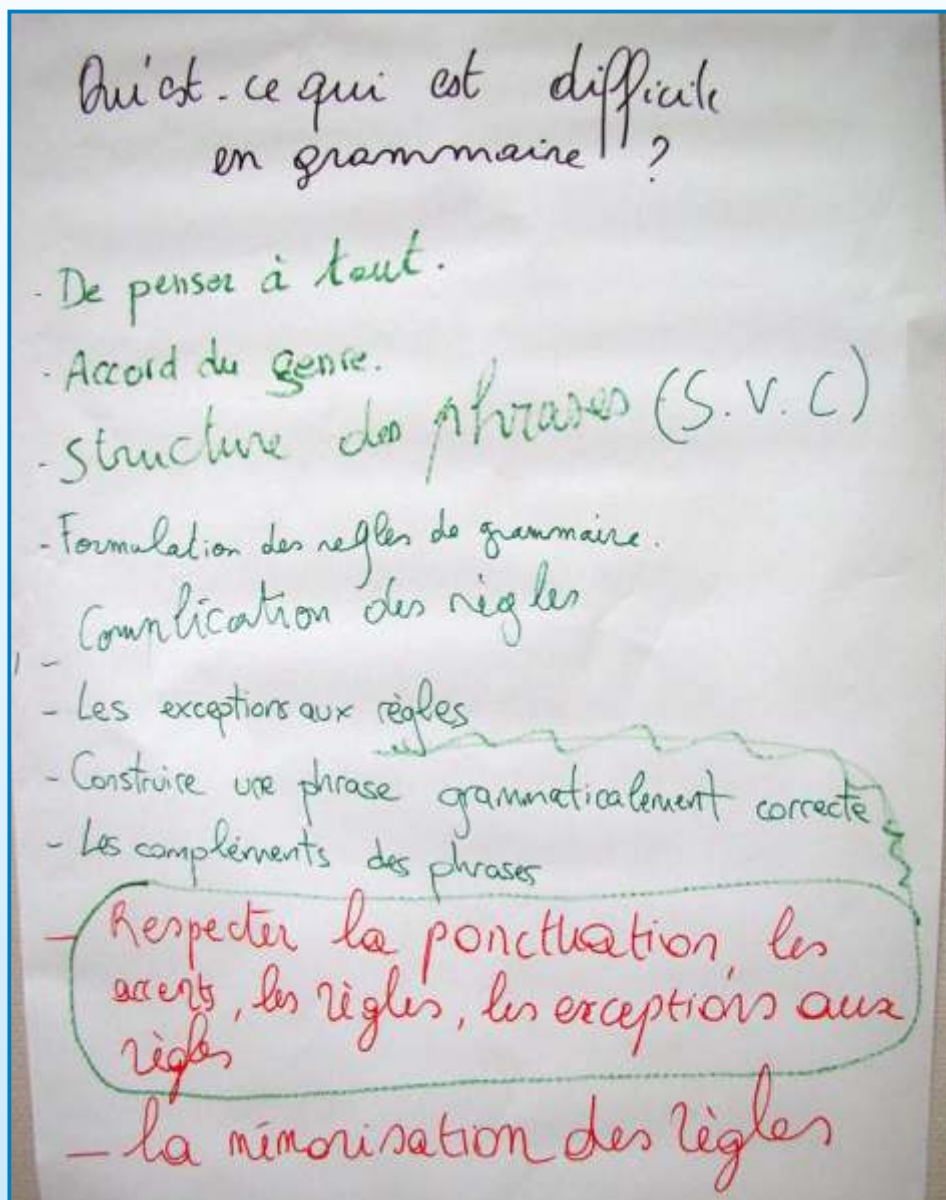 Qu'est-ce qui est difficile
en grammaire ?
- De penser à tout.
- Accord du genre.
- Structure des phrases (S.V.C)
- Formulation des règles de grammaire.
- Complication des règles
- Les exceptions aux règles
- Construire une phrase grammaticalement correcte
- Les compléments des phrases
- Respecter la ponctuation, les
accents, les règles, les exceptions aux
règles
- la mémorisation des règles